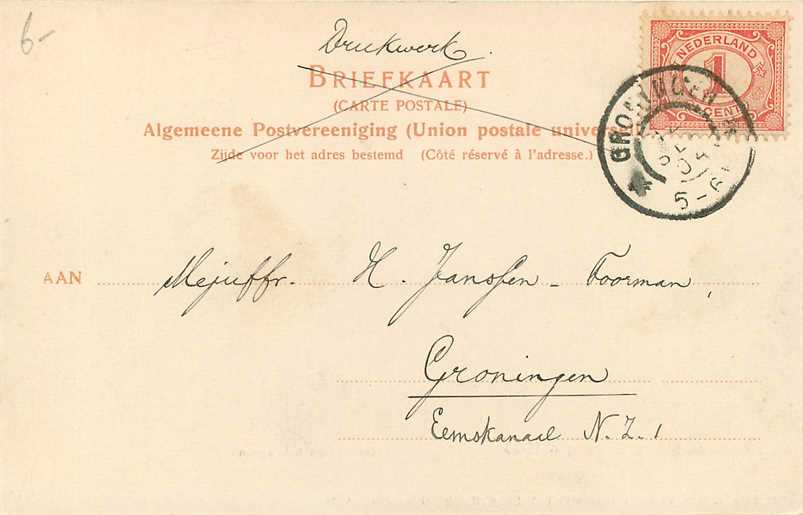 6-
Drukwerk.
BRIEFKAART
(CARTE POSTALE)
Algemeene Postvereeniging (Union postale unive
Zijde voor het adres bestemd (Côté réservé à l'adresse.)
NEDERLAND
1
CENT
GRONINGEN
04
5-6
AAN Mejuffr. H. Janssen - Foorman,
Groningen
Eemskanaal N.Z. 1